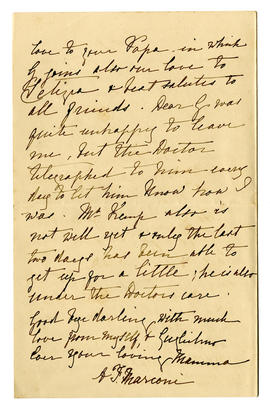 love to your Papa in which
G joins also our love to
& best salutes to
all friends. Dear G was
quite unhappy to leave
me, but the Doctor
telegraphed to him every
day to let him know how I
was. Mr Kemp also is
not well yet & only the last
two days has been able to
get up for a little; he is also
under the Doctors care.
Good bye darling, with much
love from myself & Guglielmo
Ever your loving Mamma
A. F. Marconi